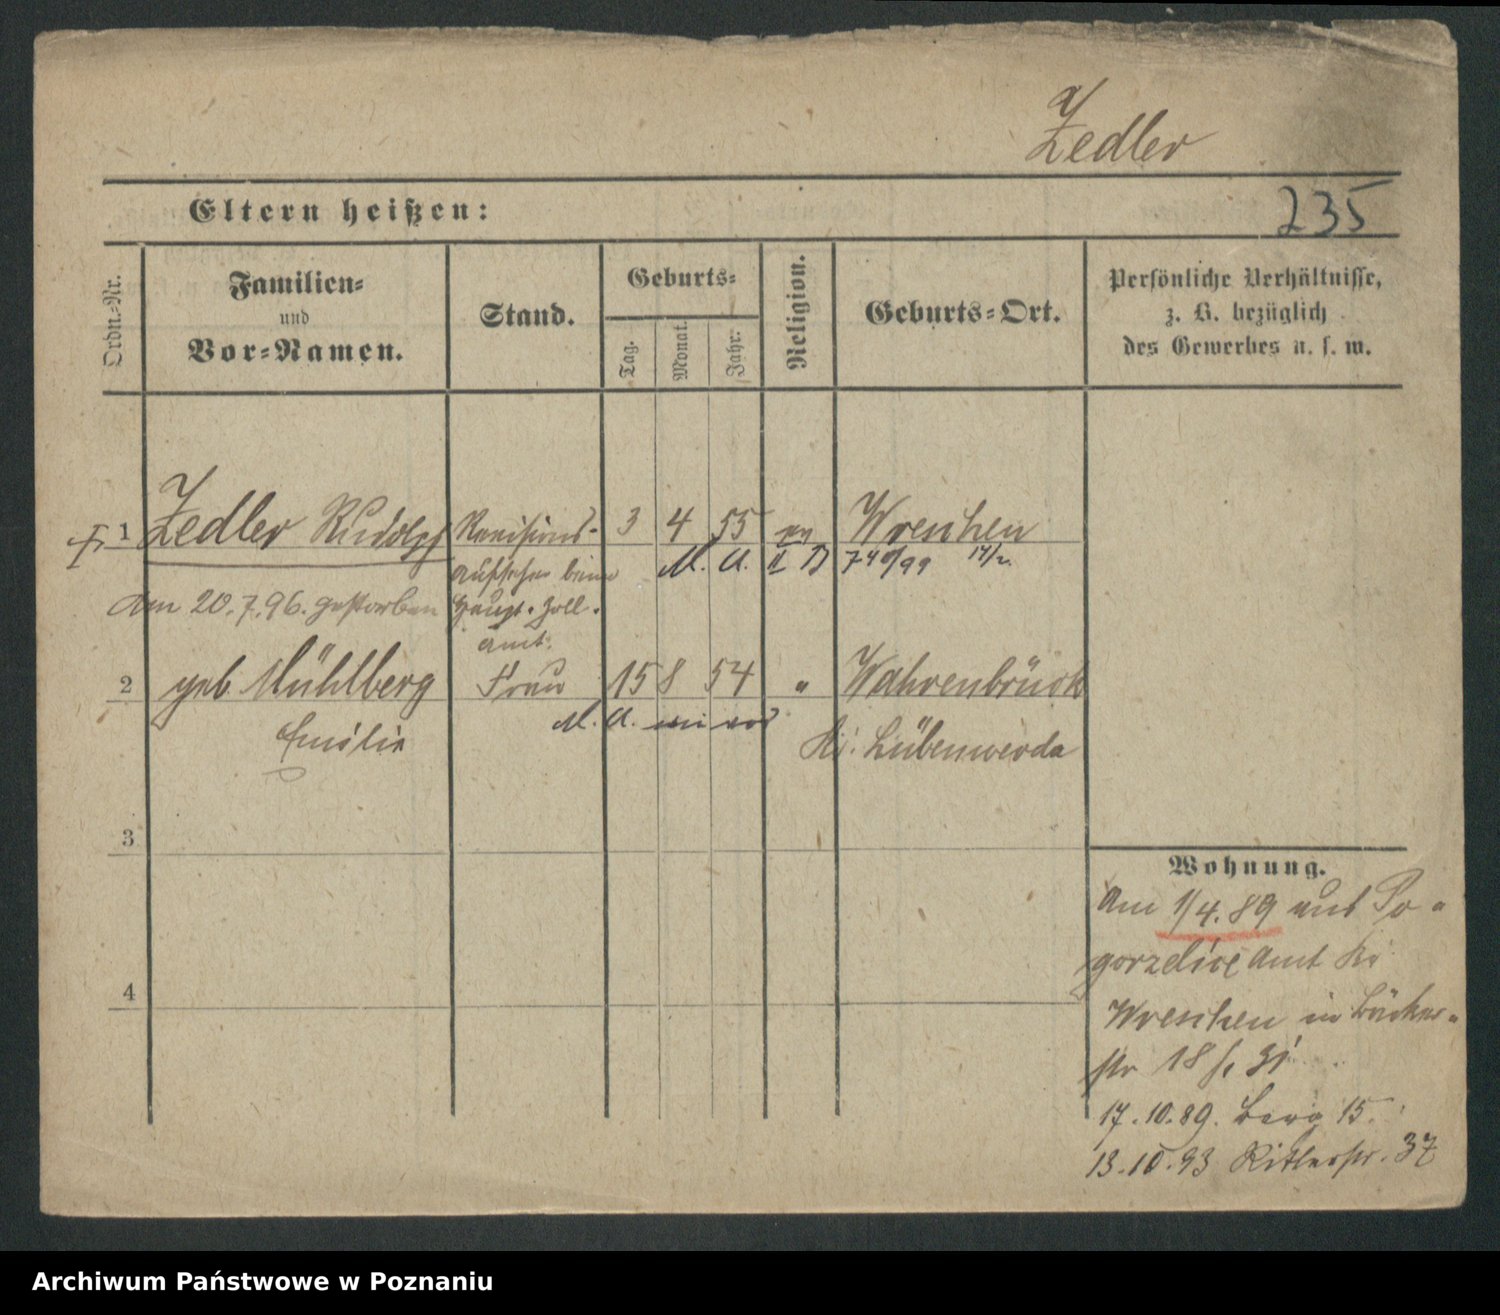 Zedler
Eltern heißen:
235
Ordn.-Nr.
Familien-
und
Vor-Namen.
Stand.
Geburts-
Tag.
Monat.
Jahr.
Religion.
Geburts-Ort.
Persönliche Verhältnisse,
z. B. bezüglich
des Gewerbes u. s. w.
1 Zedler Rudolph Revisions- 3 4 55 ev Wreschen
aufseher beim M. A. II B 740/99 14/2.
am 20.7.96. gestorben Haupt-Zoll-
amt.
2 geb. Mühlberg Frau 15 8 54 " Wahrenbrück
M. A. wie vor
Emilie Kr. Lübenwerda
3
4
Wohnung.
Am 1/4.89 aus Po-
gorzelice Amt Kr
Wreschen in Bäcker-
str 18
17.10.89. Berg 15.
13.10.93 Ritterstr. 37
Archiwum Państwowe w Poznaniu